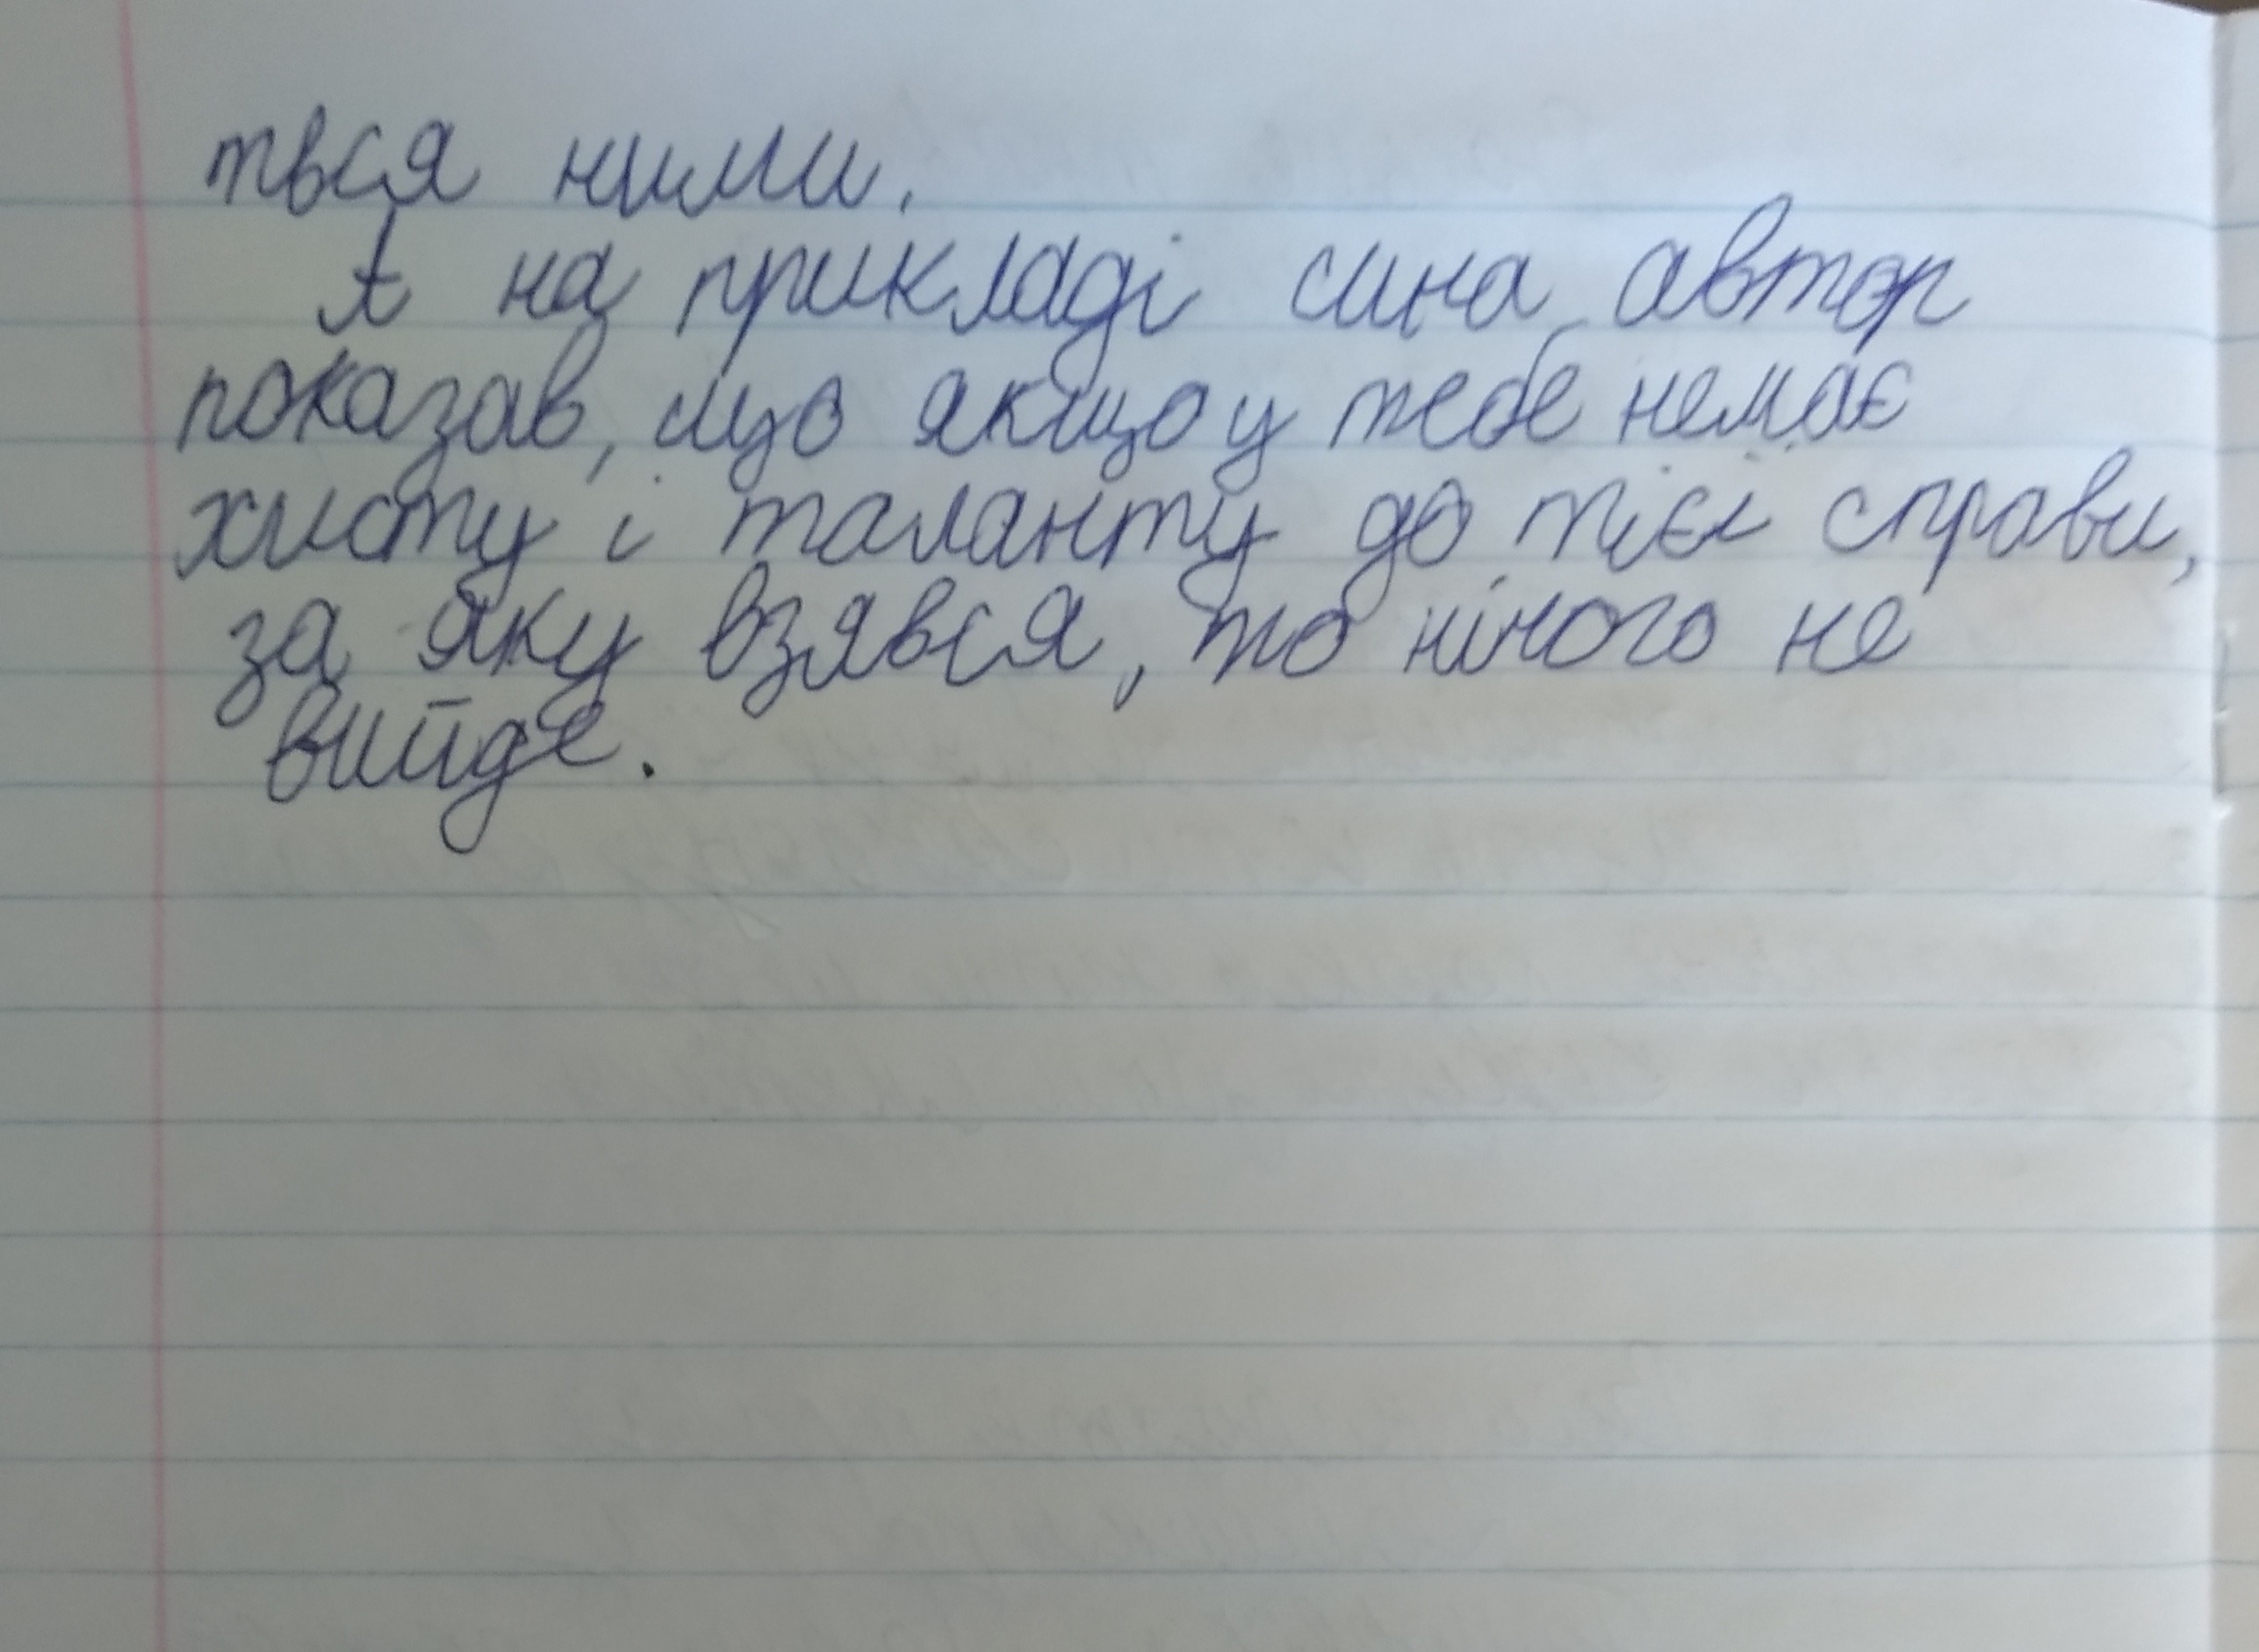 ться ними.
А на прикладі сина автор
показав, що якщо у тебе немає
хисту і таланту до тієї справи,
за яку взявся, то нічого не
вийде.